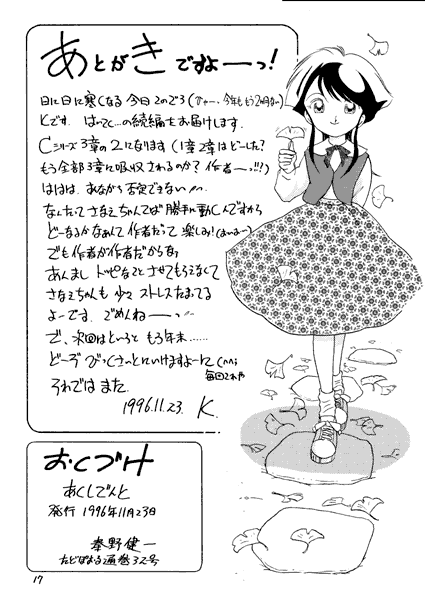 あとがきですよーっ!
日に日に寒くなる今日このごろ(ひゃー、今年ももう2ヶ月ない)
Kです。はってく…の続編をお届けします。
Cシリーズ3章の2になります(1章2章はどーした?
もう全部3章に吸収されるのか?作者ーっ!!?)
ははは、われながら否定できない
なんたってさなえちゃんてば勝手に動くんですから
どーなるかなぁんて作者だって楽しみ!
でも作者が作者だからなぁ
あんましトッピなことさせてもらえなくて
さなえちゃんも少々ストレスたまってる
よーです。ごめんねーっ
で、次回はというと もう年末……
どーぞ びっくさっとにいけますよーに
毎回これや
それでは また。
1996.11.23. K.
おくづけ
あくしでんと
発行 1996年11月23日
秦野健一
たどぽおる通巻32号
17